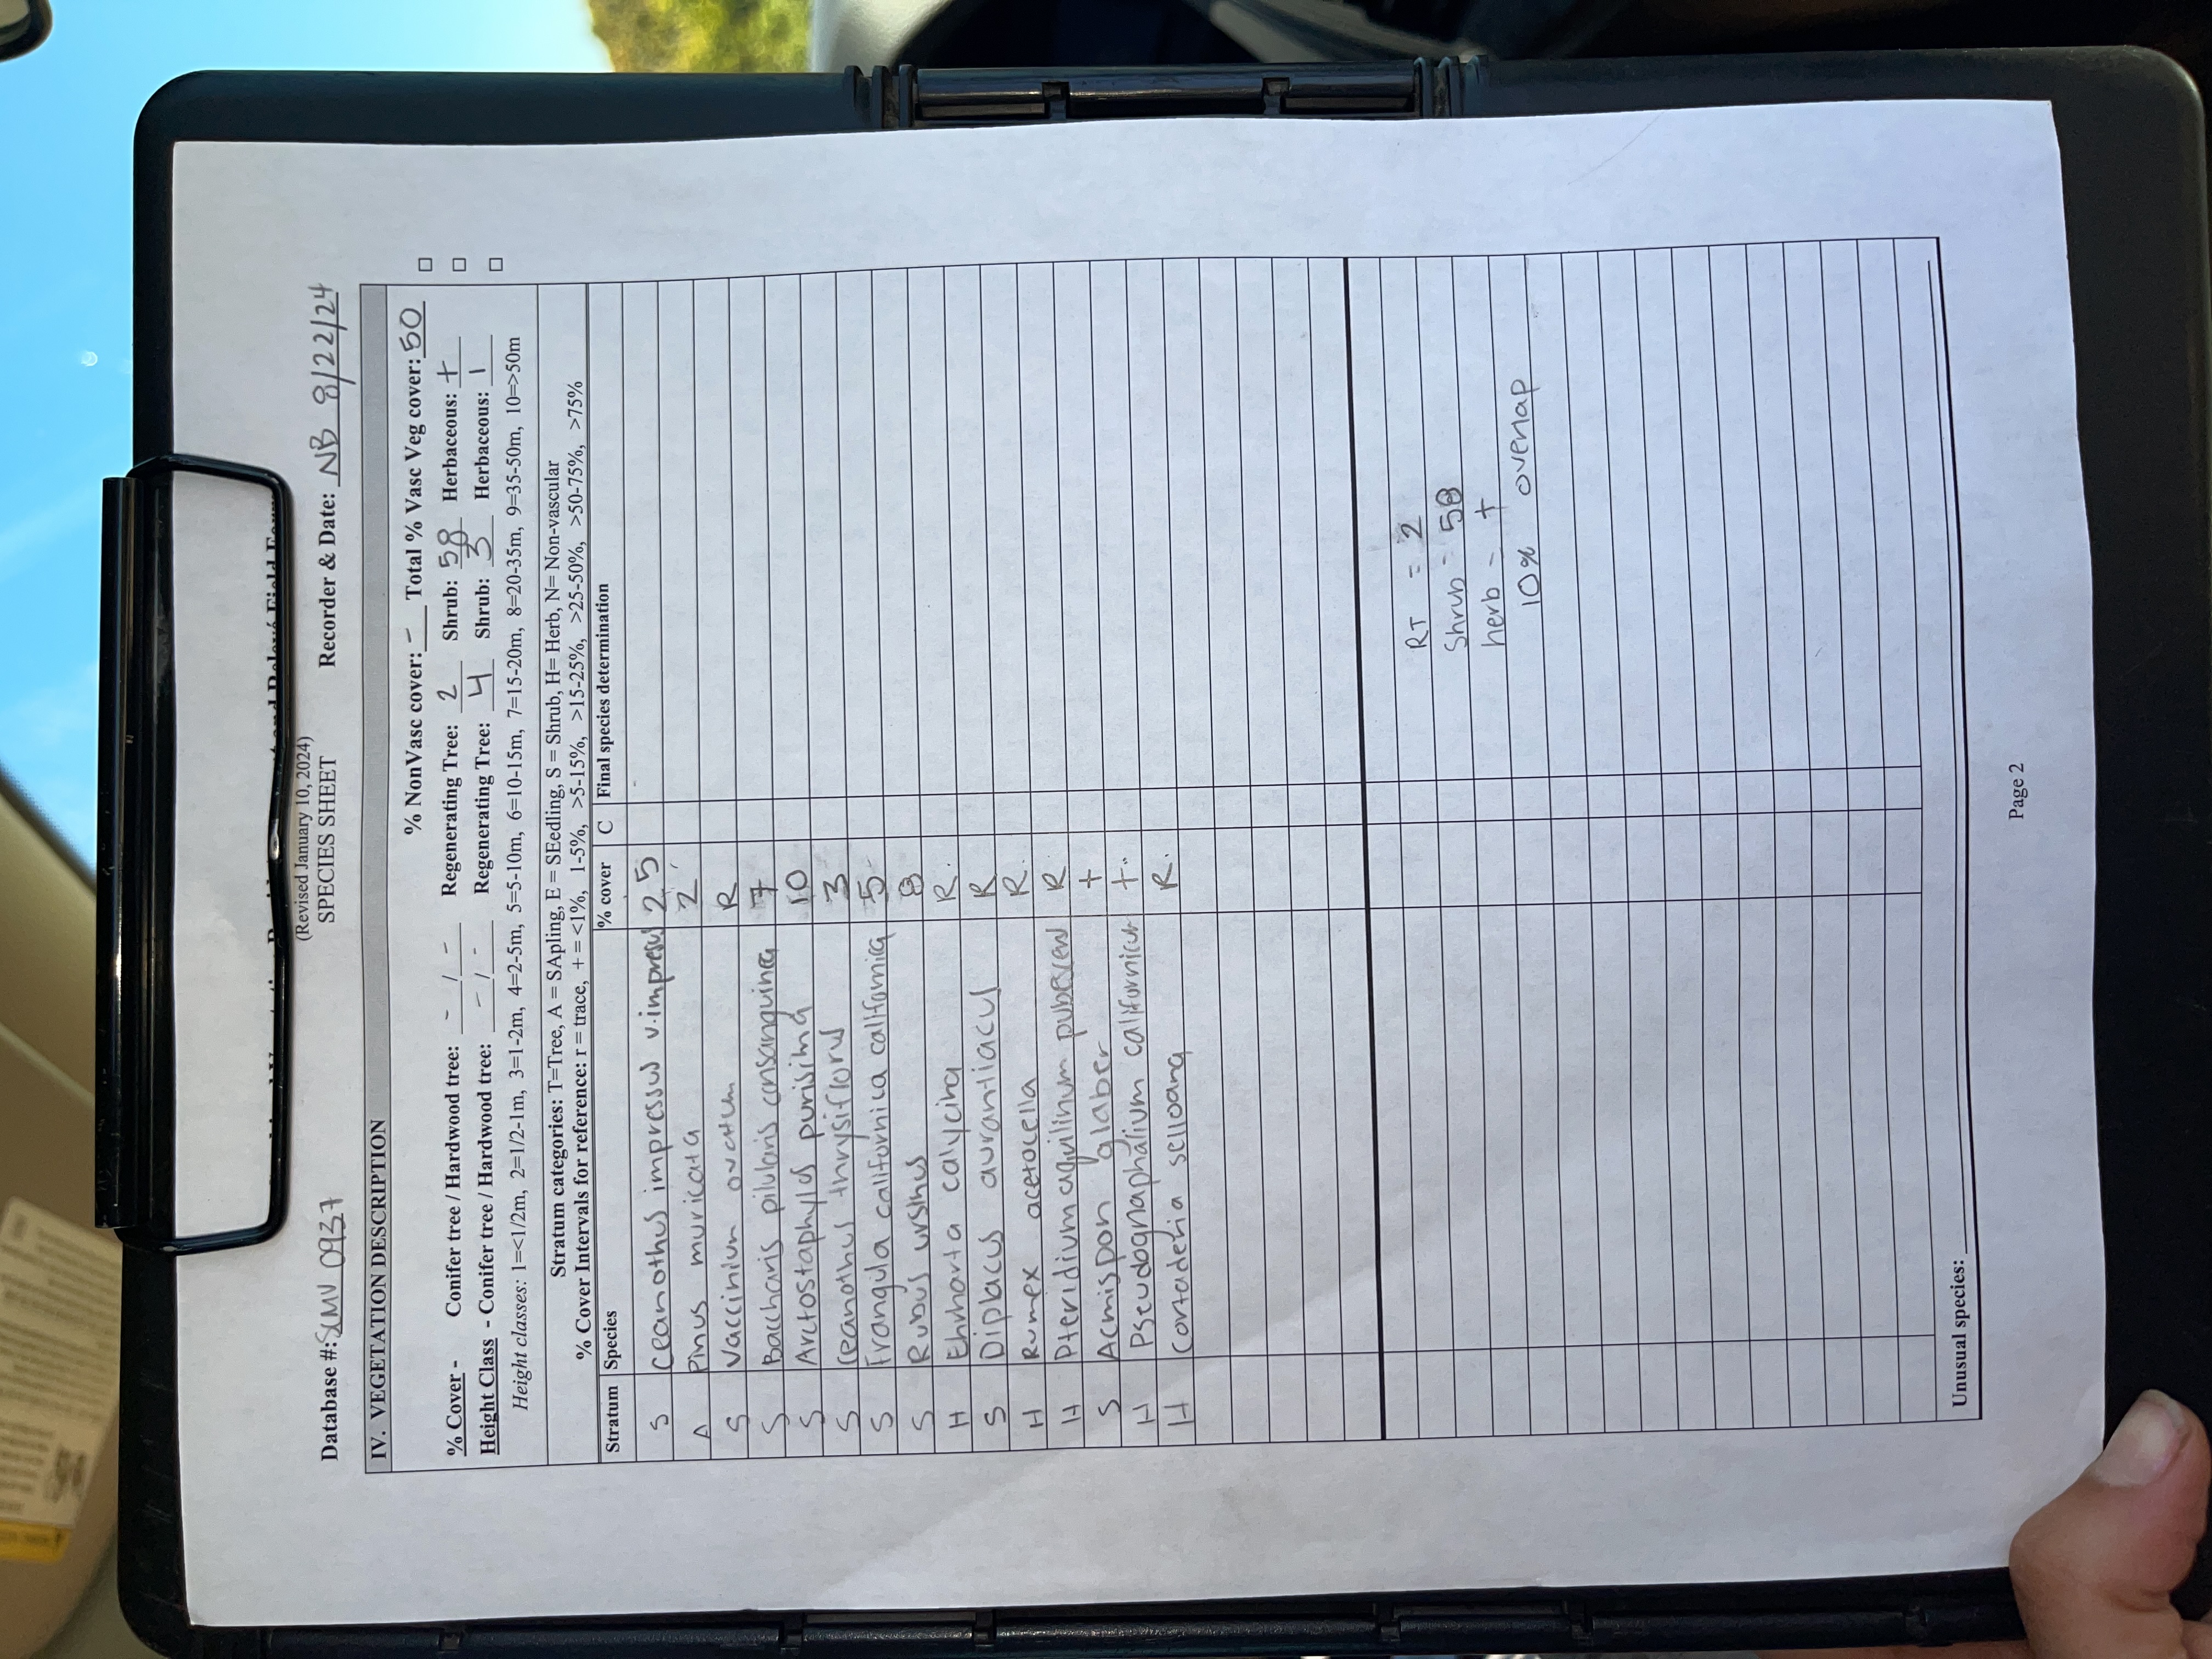 (Revised January 10, 2024)
SPECIES SHEET
Database #: SLMV 0937 Recorder & Date: NB 8/22/24
IV. VEGETATION DESCRIPTION
% NonVasc cover: - Total % Vasc Veg cover: 50 □
% Cover - Conifer tree / Hardwood tree: - / - Regenerating Tree: 2 Shrub: 58 Herbaceous: + □
Height Class - Conifer tree / Hardwood tree: - / - Regenerating Tree: 4 Shrub: 3 Herbaceous: 1 □
Height classes: 1=<1/2m, 2=1/2-1m, 3=1-2m, 4=2-5m, 5=5-10m, 6=10-15m, 7=15-20m, 8=20-35m, 9=35-50m, 10=>50m
Stratum categories: T=Tree, A = SApling, E = SEedling, S = Shrub, H= Herb, N= Non-vascular
% Cover Intervals for reference: r = trace, + = <1%, 1-5%, >5-15%, >15-25%, >25-50%, >50-75%, >75%
Stratum Species % cover C Final species determination
S Ceanothus impressus v. impressus 25
A Pinus muricata 2
S Vaccinium ovatum R
S Baccharis pilularis consanguinea 7
S Arctostaphylos purisima 10
S Ceanothus thrysiflorus 3
S Frangula californica californica 5
S Rubus ursinus 8
H Ehrharta calycina R
S Diplacus aurantiacus R
H Rumex acetocella R
H Pteridium aquilinum pubescens R
S Acmispon glaber +
H Pseudognaphalium californicum +
H Cortaderia selloana R
RT = 2
Shrub - 58
herb - +
10% overlap
Unusual species:
Page 2